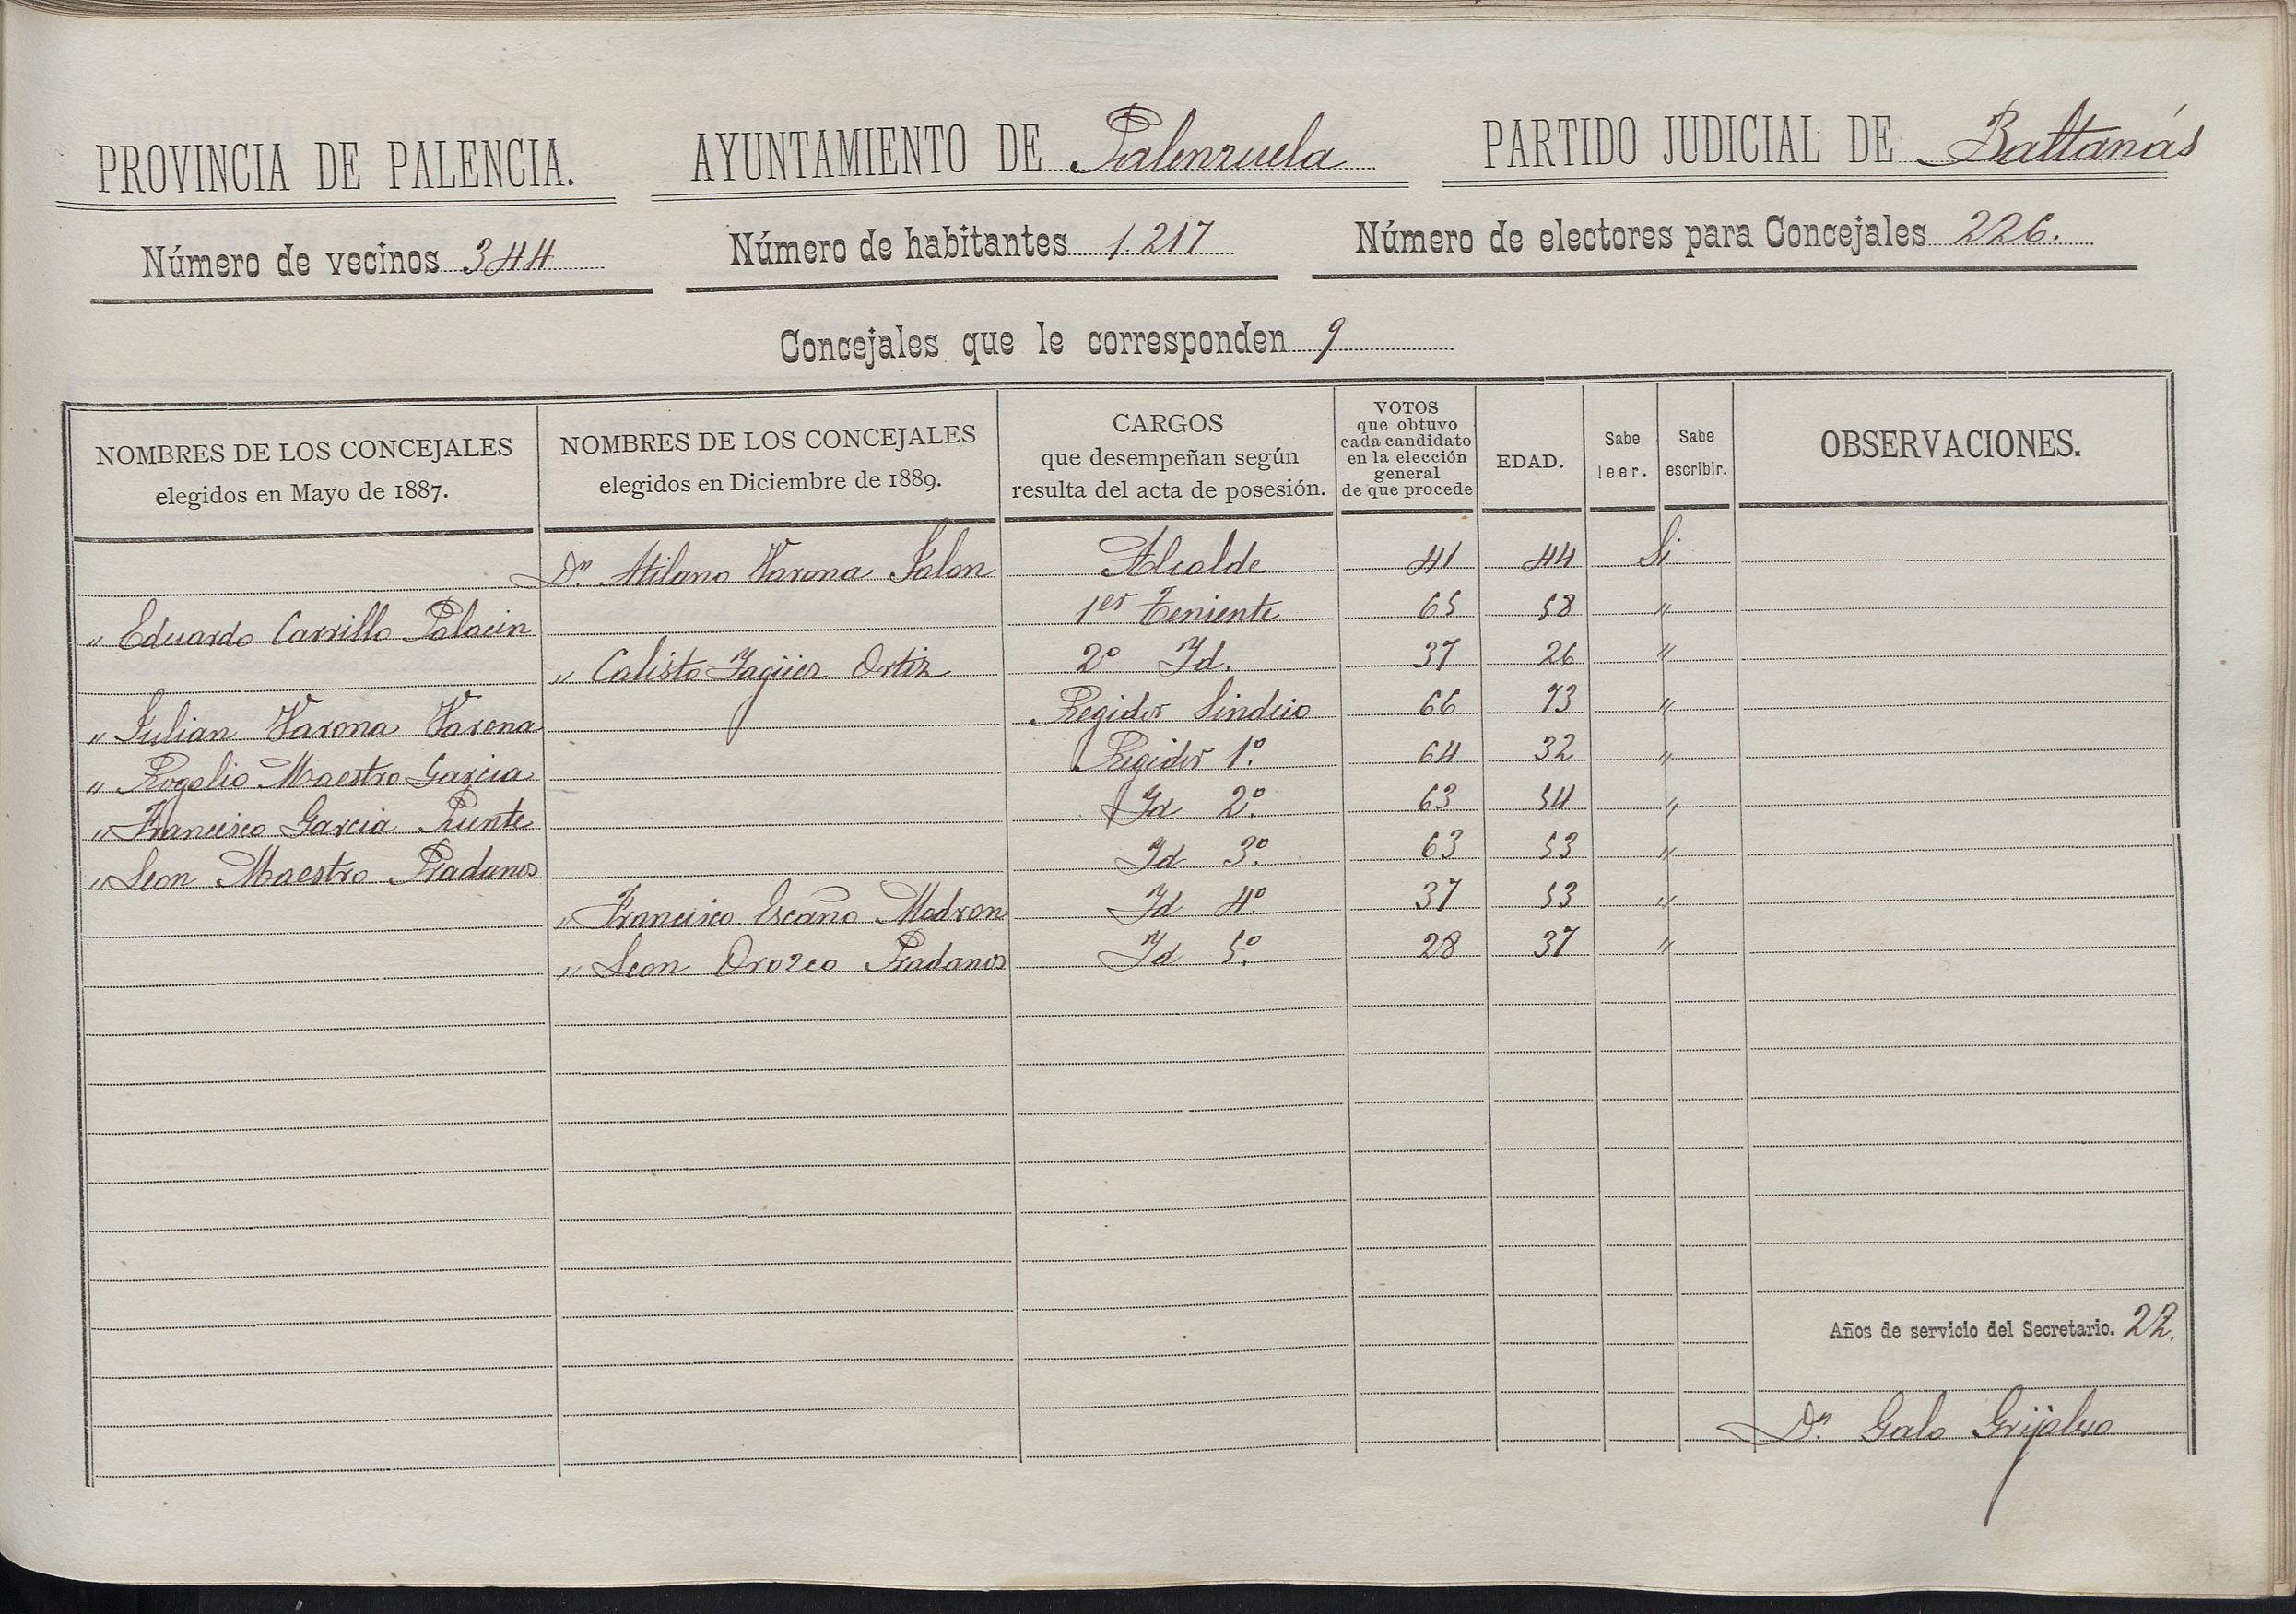 PROVINCIA DE PALENCIA. AYUNTAMIENTO DE Palenzuela PARTIDO JUDICIAL DE Baltanás
Número de vecinos 344 Número de habitantes 1.217 Número de electores para Concejales 226.
Concejales que le corresponden 9
NOMBRES DE LOS CONCEJALES
elegidos en Mayo de 1887.
NOMBRES DE LOS CONCEJALES
elegidos en Diciembre de 1889.
CARGOS
que desempeñan según
resulta del acta de posesión.
VOTOS
que obtuvo
cada candidato
en la elección
general
de que procede
EDAD.
Sabe
leer.
Sabe
escribir.
OBSERVACIONES.
Dn. Atilano Varona Alcalde 41 44 Si
" Eduardo Carrillo Palacin 1er Teniente 65 58 "
" Calisto Yagüez Ortiz 2º Id. 37 26 "
" Julian Varona Varona Regidor Sindico 66 73 "
" Rogelio Maestro Garcia Regidor 1º. 64 32 "
" Francisco Garcia Puente Id 2º. 63 54 "
" Leon Maestro Pradanos Id 3º. 63 53 "
" Francisco Escaño Modron Id 4º. 37 53 "
" Leon Orozco Pradanos Id 5º. 28 37 "
Años de servicio del Secretario. 22.
Dn. Galo Grijalvo